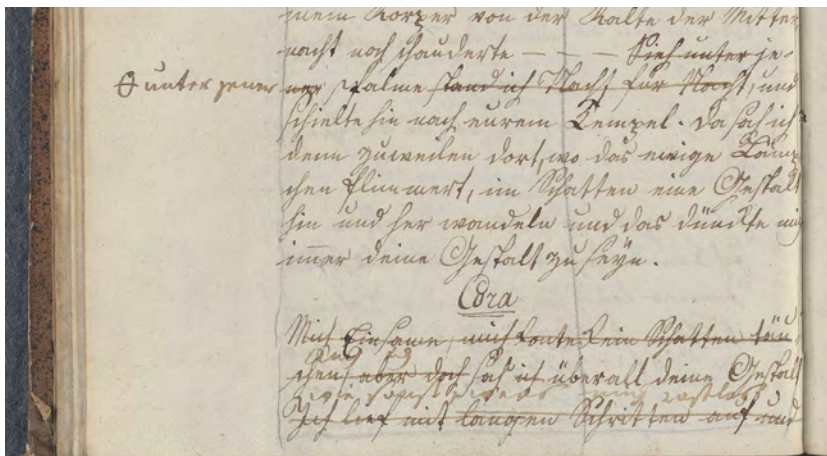 meinem Körper von der Kälte der Mitter
nacht noch schauderte — — — Sieh unter je-
unter jener ner Palme stand ich Nacht für Nacht, und
schielte hin nach eurem Tempel. Da sah ich
denn zuweilen dort, wo das ewige Lämp
chen flimmert, im Schatten eine Gestalt
hin und her wandeln und das dünkte mich
immer deine Gestalt zu seyn.
Cora
Mich Einsame, mich konte kein Schatten täu
schen, aber doch sah ich überall deine Gestalt
Ich lief mit langen Schritten auf und